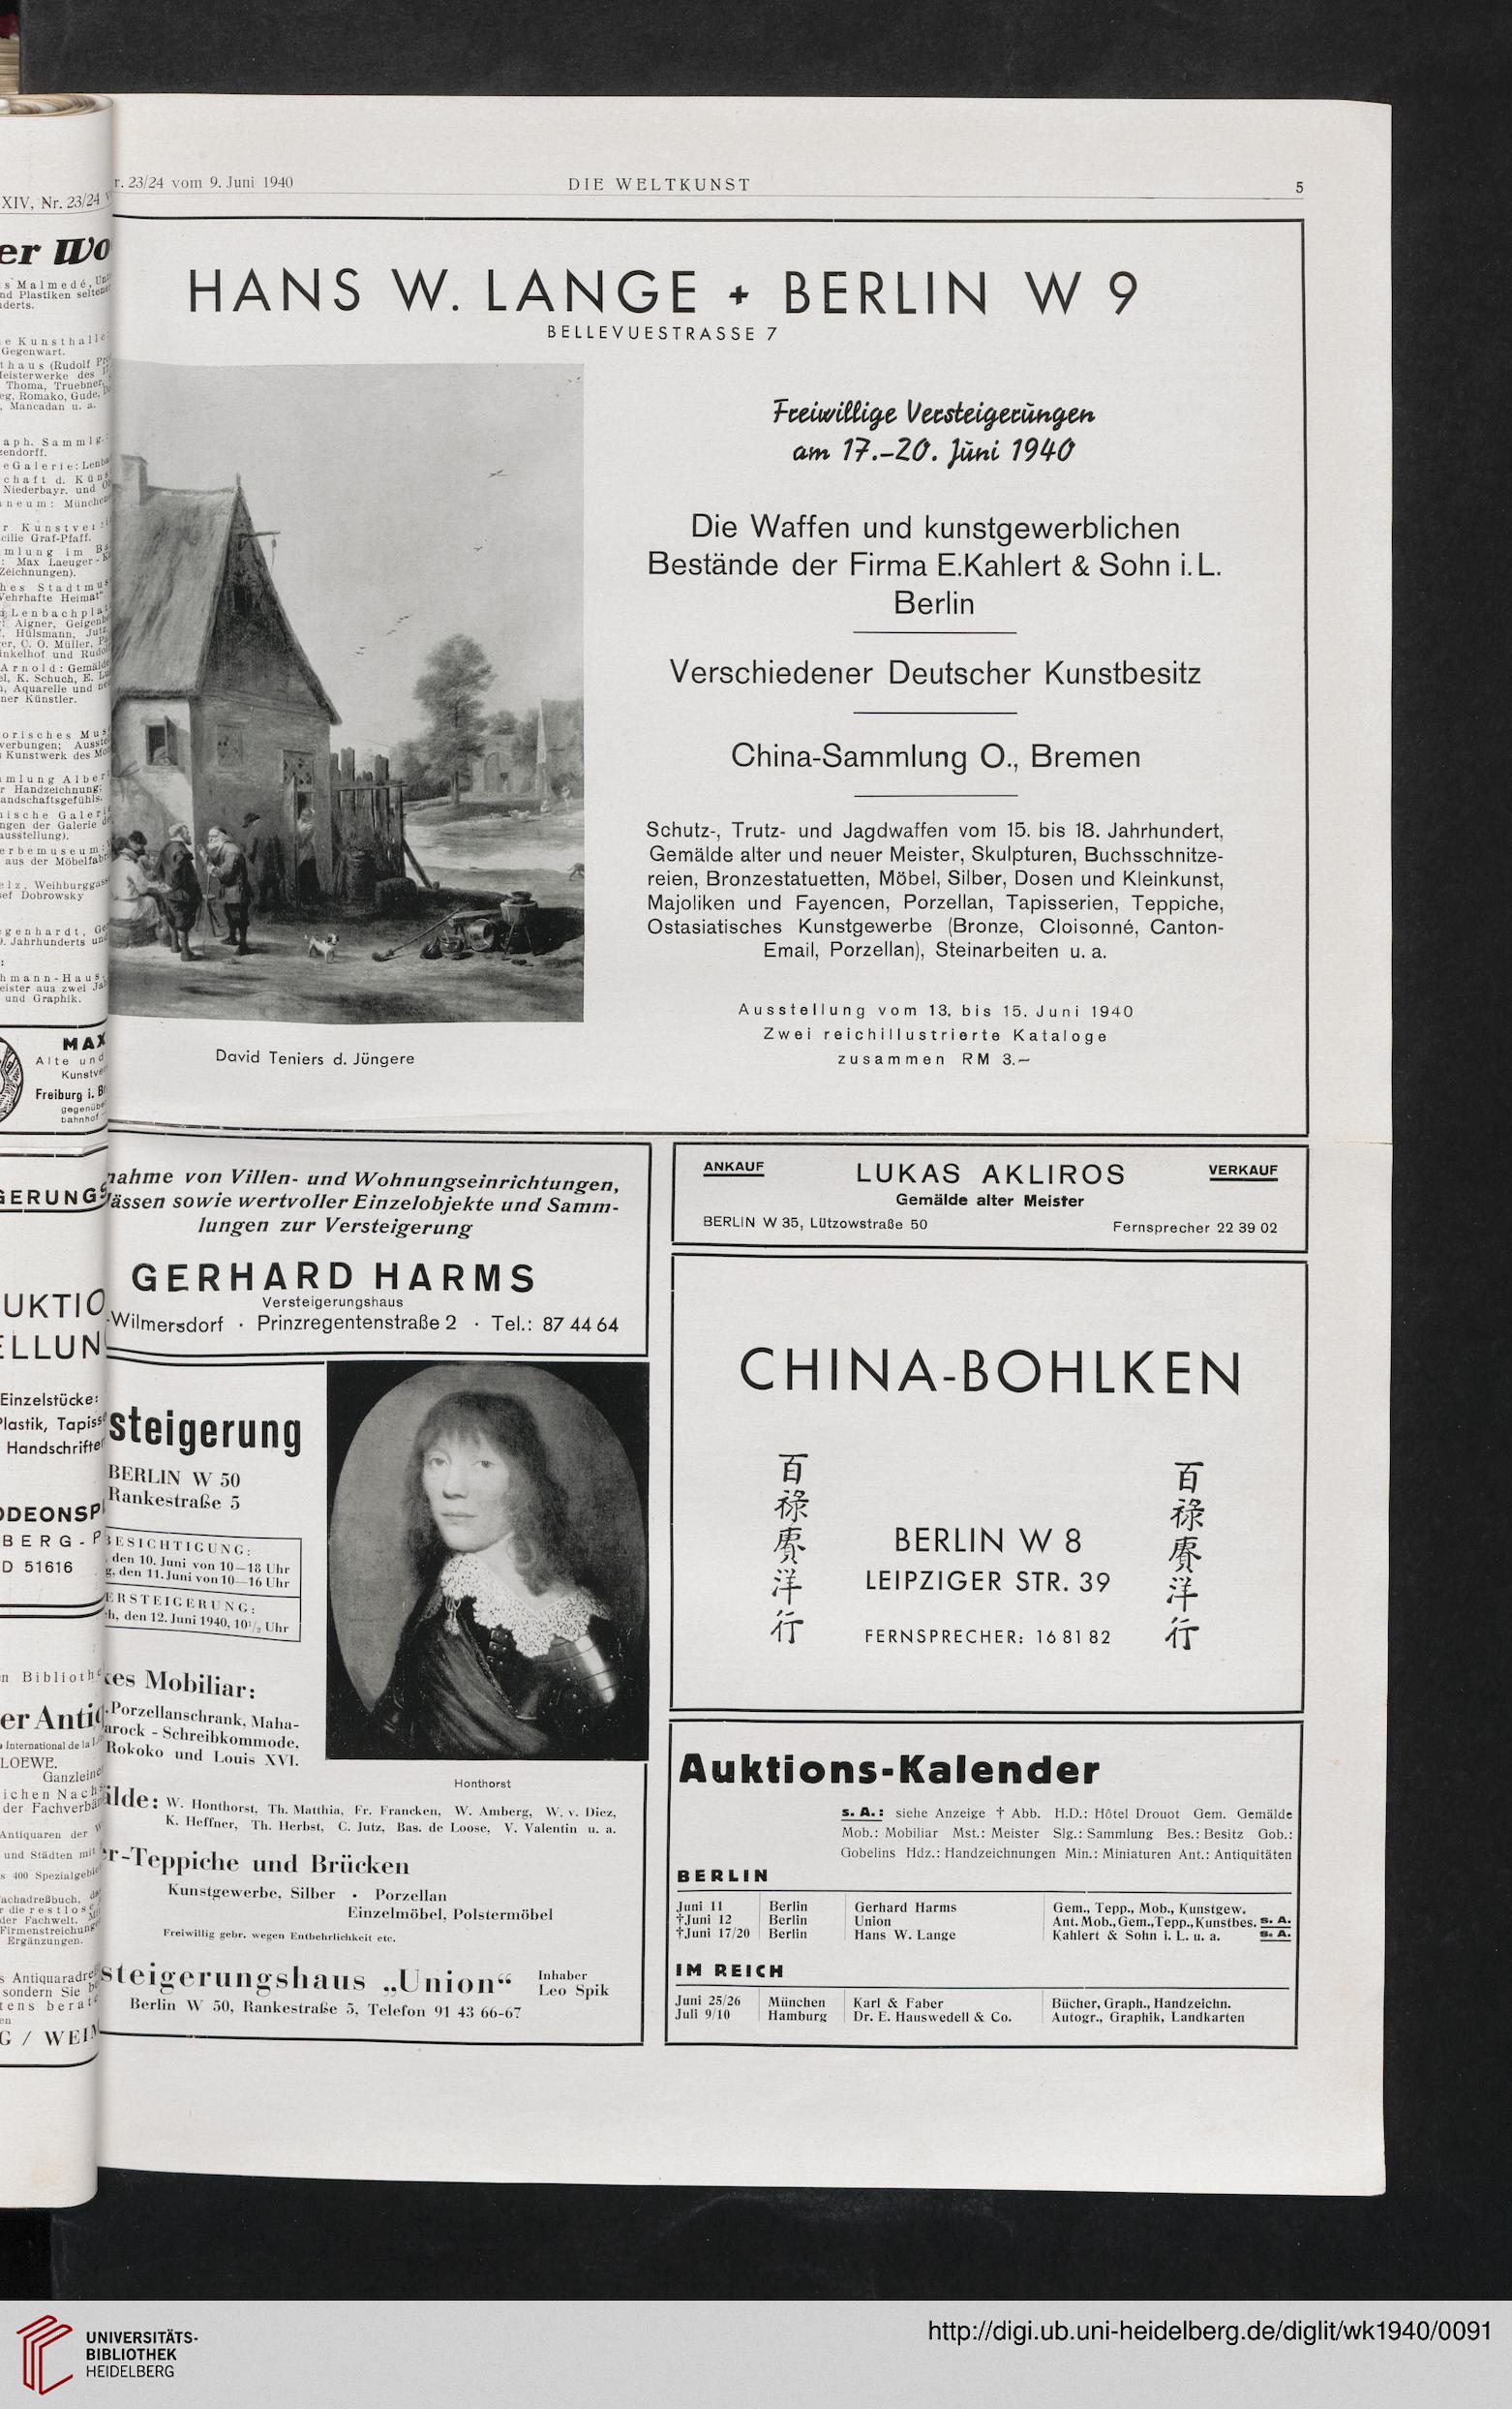 r. 23/24 vom 9. Juni 1940
DIE WELTKUNST
5
HANS W. LANGE + BERLIN W 9
BELLEVUESTRASSE 7
Freiwillige Versteigerūngen
am 17.–20. Jūni 1940
Die Waffen und kunstgewerblichen
Bestände der Firma E.Kahlert & Sohn i.L.
Berlin
Verschiedener Deutscher Kunstbesitz
China-Sammlung O., Bremen
Schutz-, Trutz- und Jagdwaffen vom 15. bis 18. Jahrhundert,
Gemälde alter und neuer Meister, Skulpturen, Buchsschnitze-
reien, Bronzestatuetten, Möbel, Silber, Dosen und Kleinkunst,
Majoliken und Fayencen, Porzellan, Tapisserien, Teppiche,
Ostasiatisches Kunstgewerbe (Bronze, Cloisonné, Canton-
Email, Porzellan), Steinarbeiten u. a.
Ausstellung vom 13. bis 15. Juni 1940
Zwei reichillustrierte Kataloge
zusammen RM 3.–
David Teniers d. Jüngere
nahme von Villen- und Wohnungseinrichtungen,
ässen sowie wertvoller Einzelobjekte und Samm-
lungen zur Versteigerung
GERHARD HARMS
Versteigerungshaus
-Wilmersdorf · Prinzregentenstraße 2 · Tel.: 87 44 64
steigerung
BERLIN W 50
Rankestraße 5
BESICHTIGUNG:
, den 10. Juni von 10—18 Uhr
g, den 11. Juni von 10—16 Uhr
ERSTEIGERUNG:
h, den 12. Juni 1940, 10½ Uhr
kes Mobiliar:
Porzellanschrank, Maha-
arock - Schreibkommode,
Rokoko und Louis XVI.
Honthorst
älde: W. Honthorst, Th. Matthia, Fr. Francken, W. Amberg, W. v. Diez,
K. Heffner, Th. Herbst, C. Jutz, Bas. de Loose, V. Valentin u. a.
r-Teppiche und Brücken
Kunstgewerbe, Silber · Porzellan
Einzelmöbel, Polstermöbel
Freiwillig gebr. wegen Entbehrlichkeit etc.
steigerungshaus „Union“ Inhaber
Leo Spik
Berlin W 50, Rankestraße 5, Telefon 91 43 66-67
ANKAUF
LUKAS AKLIROS
VERKAUF
Gemälde alter Meister
BERLIN W 35, Lützowstraße 50
Fernsprecher 22 39 02
CHINA-BOHLKEN
百祿賡洋行
BERLIN W 8
LEIPZIGER STR. 39
FERNSPRECHER: 16 81 82
百祿賡洋行
Auktions-Kalender
s. A.: siehe Anzeige † Abb. H.D.: Hôtel Drouot Gem. Gemälde
Mob.: Mobiliar Mst.: Meister Slg.: Sammlung Bes.: Besitz Gob.:
Gobelins Hdz.: Handzeichnungen Min.: Miniaturen Ant.: Antiquitäten
BERLIN
Juni 11 Berlin Gerhard Harms Gem., Tepp., Mob., Kunstgew.
†Juni 12 Berlin Union Ant. Mob., Gem., Tepp., Kunstbes. s. A.
†Juni 17/20 Berlin Hans W. Lange Kahlert & Sohn i. L. u. a. s. A.
IM REICH
Juni 25/26 München Karl & Faber Bücher, Graph., Handzeichn.
Juli 9/10 Hamburg Dr. E. Hauswedell & Co. Autogr., Graphik, Landkarten
XIV, Nr. 23/24
er Wo
s Malmedé,
nd Plastiken
derts.
e Kunsthalle
Gegenwart.
thaus (Rudolf
eisterwerke des
Thoma, Truebner,
eg, Romako, Gude,
, Mancadan u. a.
aph. Sammlg.
zendorff.
e Galerie: Lenb
chaft d. Kün
Niederbayr. und
neum: München
r Kunstver
cilie Graf-Pfaff.
mlung im
: Max Laeuger-
Zeichnungen).
hes Stadtmus
ehrhafte Heimat"
Lenbachpla
: Aigner, Geigen
, Hülsmann, Jutz
er, C. O. Müller,
inkelhof und Rudo
Arnold: Gemälde
el, K. Schuch, E.
, Aquarelle und
ner Künstler.
orisches Mus
verbungen;
Kunstwerk des
mlung Alber
r Handzeichnung;
andschaftsgefühls.
ische Galeri
ngen der Galerie
ausstellung).
erbemuseum:
aus der Möbelfabr
elz, Weihburggas
ef Dobrowsky
genhardt,
. Jahrhunderts
hmann-Haus
eister aus zwei
und Graphik.
MAX
Alte und
Kunstve
Freiburg i. B
gegenübe
bahnhof
GERUNGS
UKTIO
ELLUN
Einzelstücke:
Plastik, Tapiss
Handschrifte
ODEONSP
BERG-P
D 51616
n Biblioth
er Anti
International de la
LOEWE.
Ganzleine
ichen Nach
der Fachverbä
Antiquaren der
und Städten mit
s 400 Spezialgebi
achadreßbuch,
r die restlose
der Fachwelt.
Firmenstreichung
Ergänzungen.
s Antiquaradre
sondern Sie
tens berat
en
G / WEIM
UNIVERSITÄTS-
BIBLIOTHEK
HEIDELBERG
http://digi.ub.uni-heidelberg.de/diglit/wk1940/0091